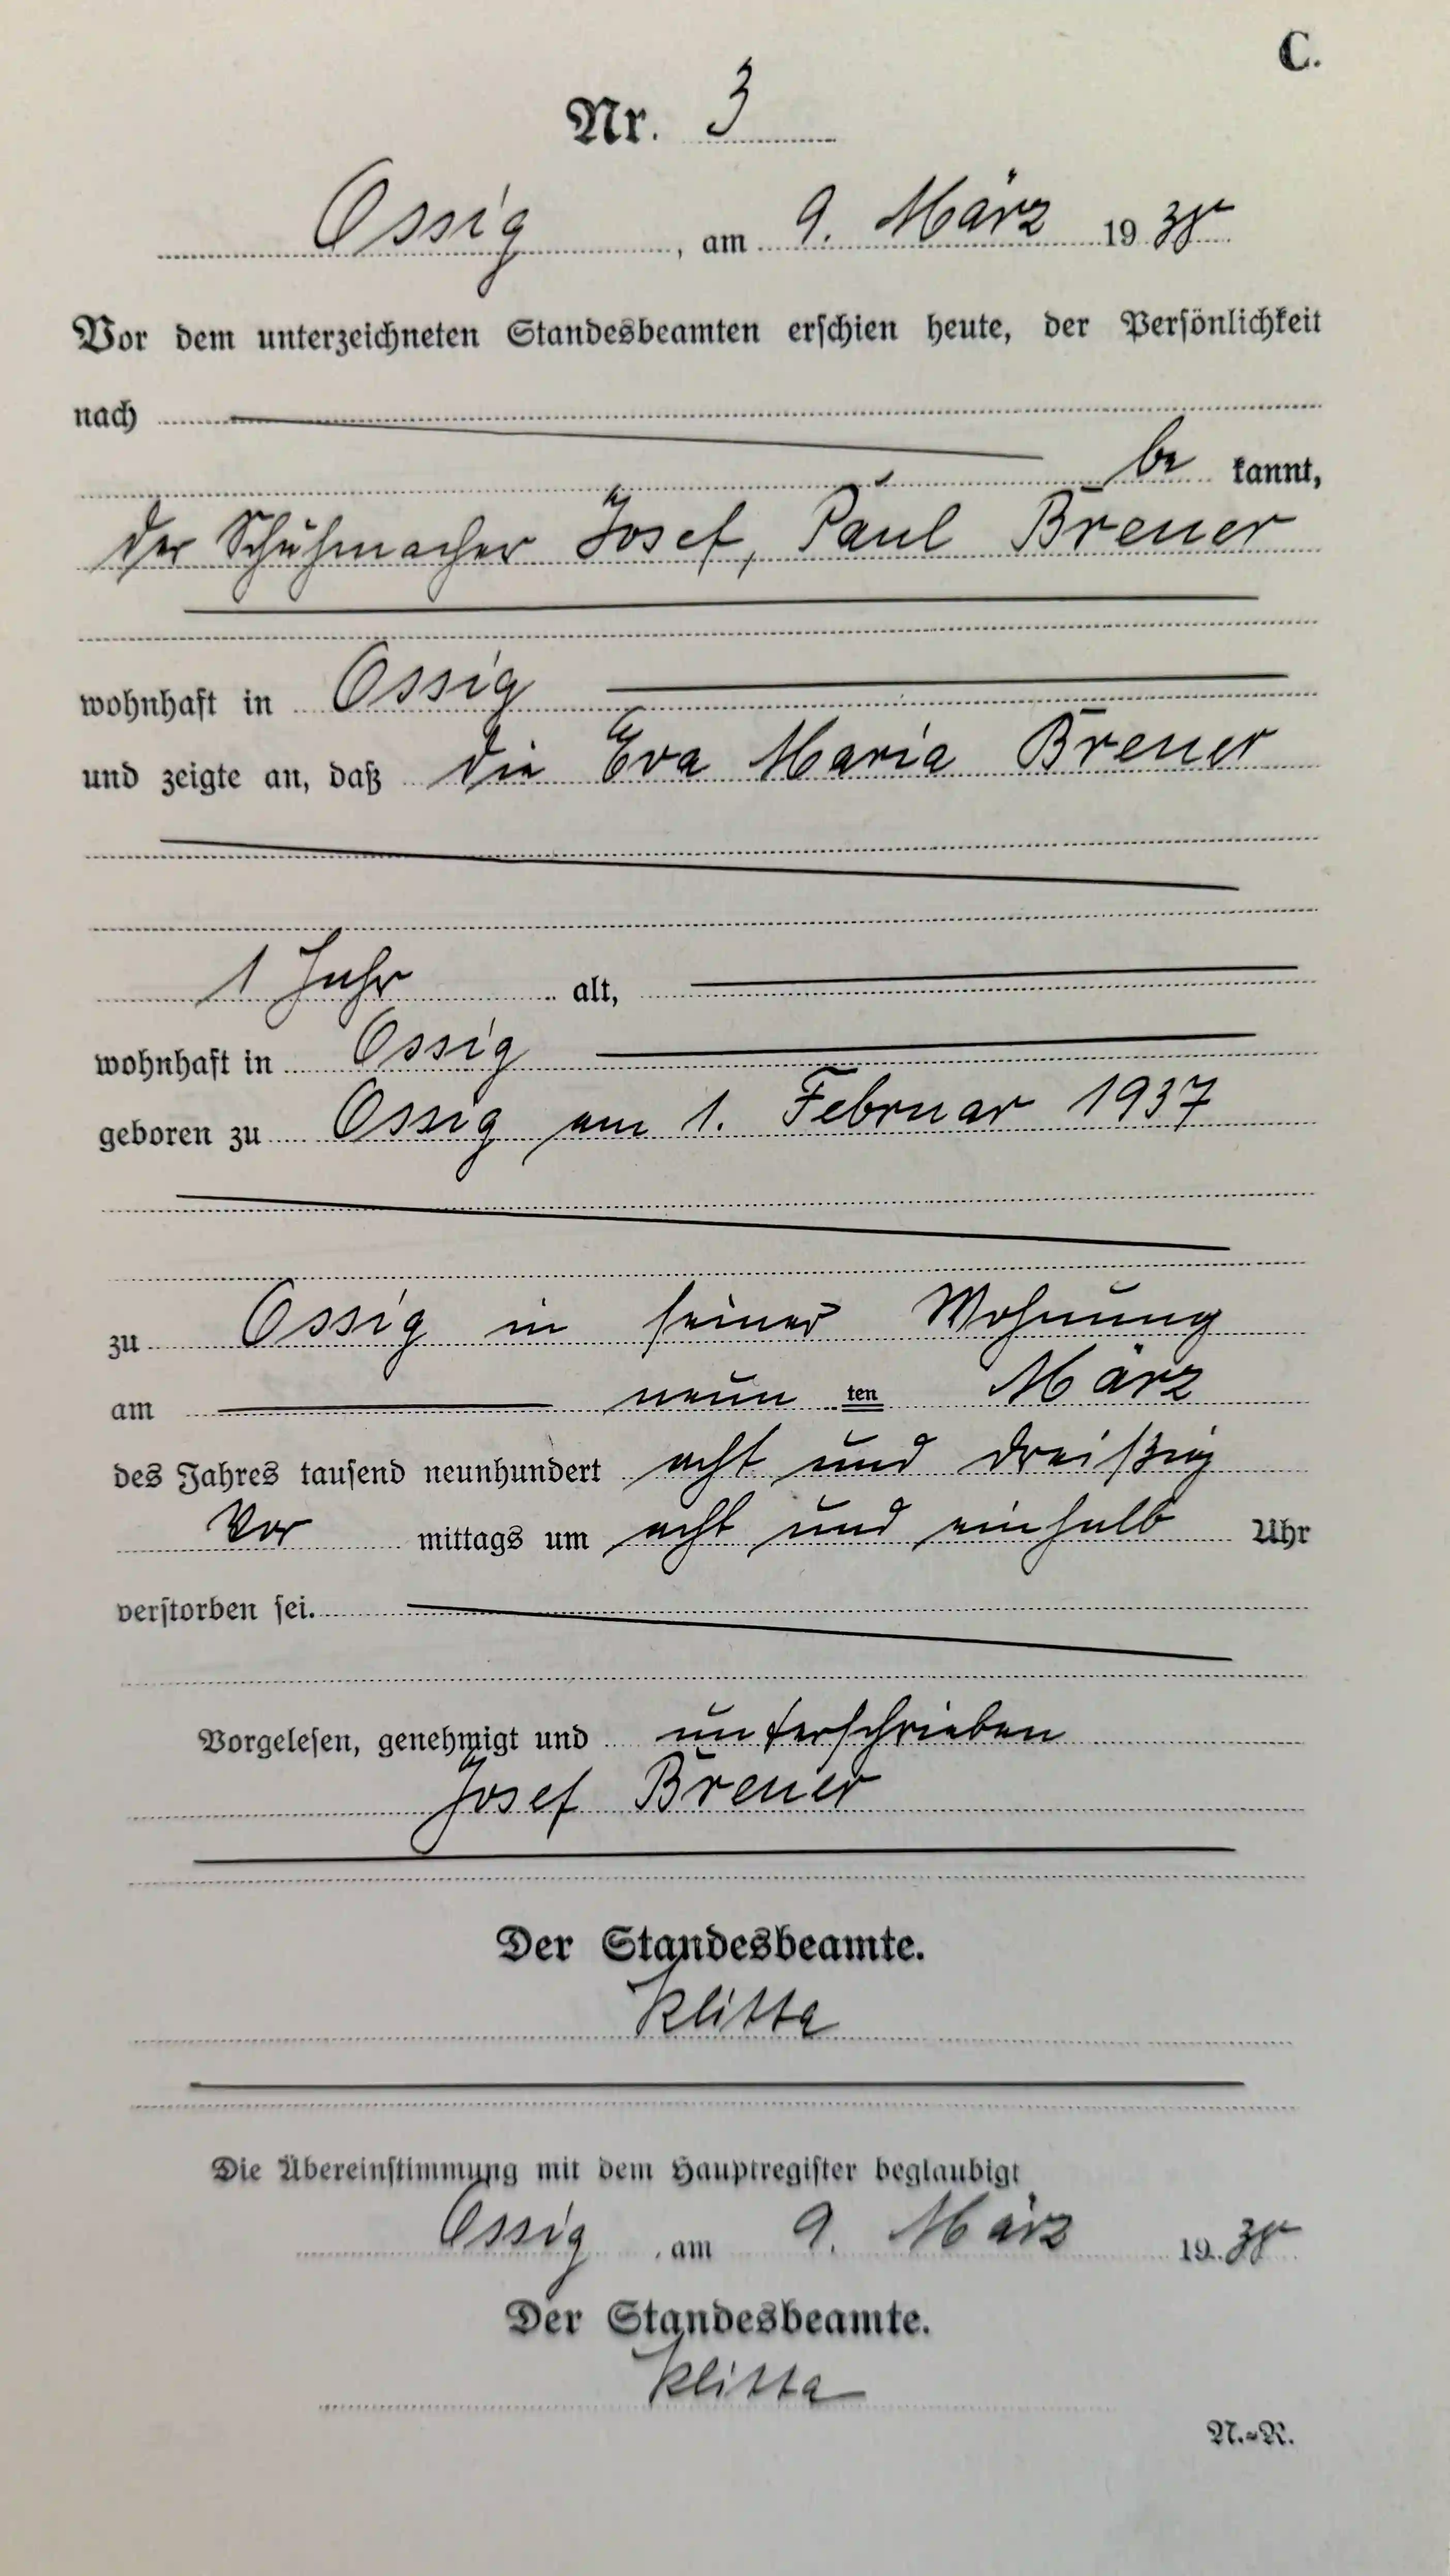 C.
Nr. 3
Ossig, am 9. März 1938
Vor dem unterzeichneten Standesbeamten erschien heute, der Persönlichkeit
nach
be kannt,
der Schuhmacher Josef, Paul Breuer
wohnhaft in Ossig
und zeigte an, daß die Eva Maria Breuer
1 Jahr alt,
wohnhaft in Ossig
geboren zu Ossig am 1. Februar 1937
zu Ossig in seiner Wohnung
am neun ten März
des Jahres tausend neunhundert acht und dreißig
Vor mittags um acht und einhalb Uhr
verstorben sei.
Vorgelesen, genehmigt und unterschrieben
Josef Breuer
Der Standesbeamte.
Klitta
Die Übereinstimmung mit dem Hauptregister beglaubigt
Ossig, am 9. März 1938
Der Standesbeamte.
Klitta
N.=R.